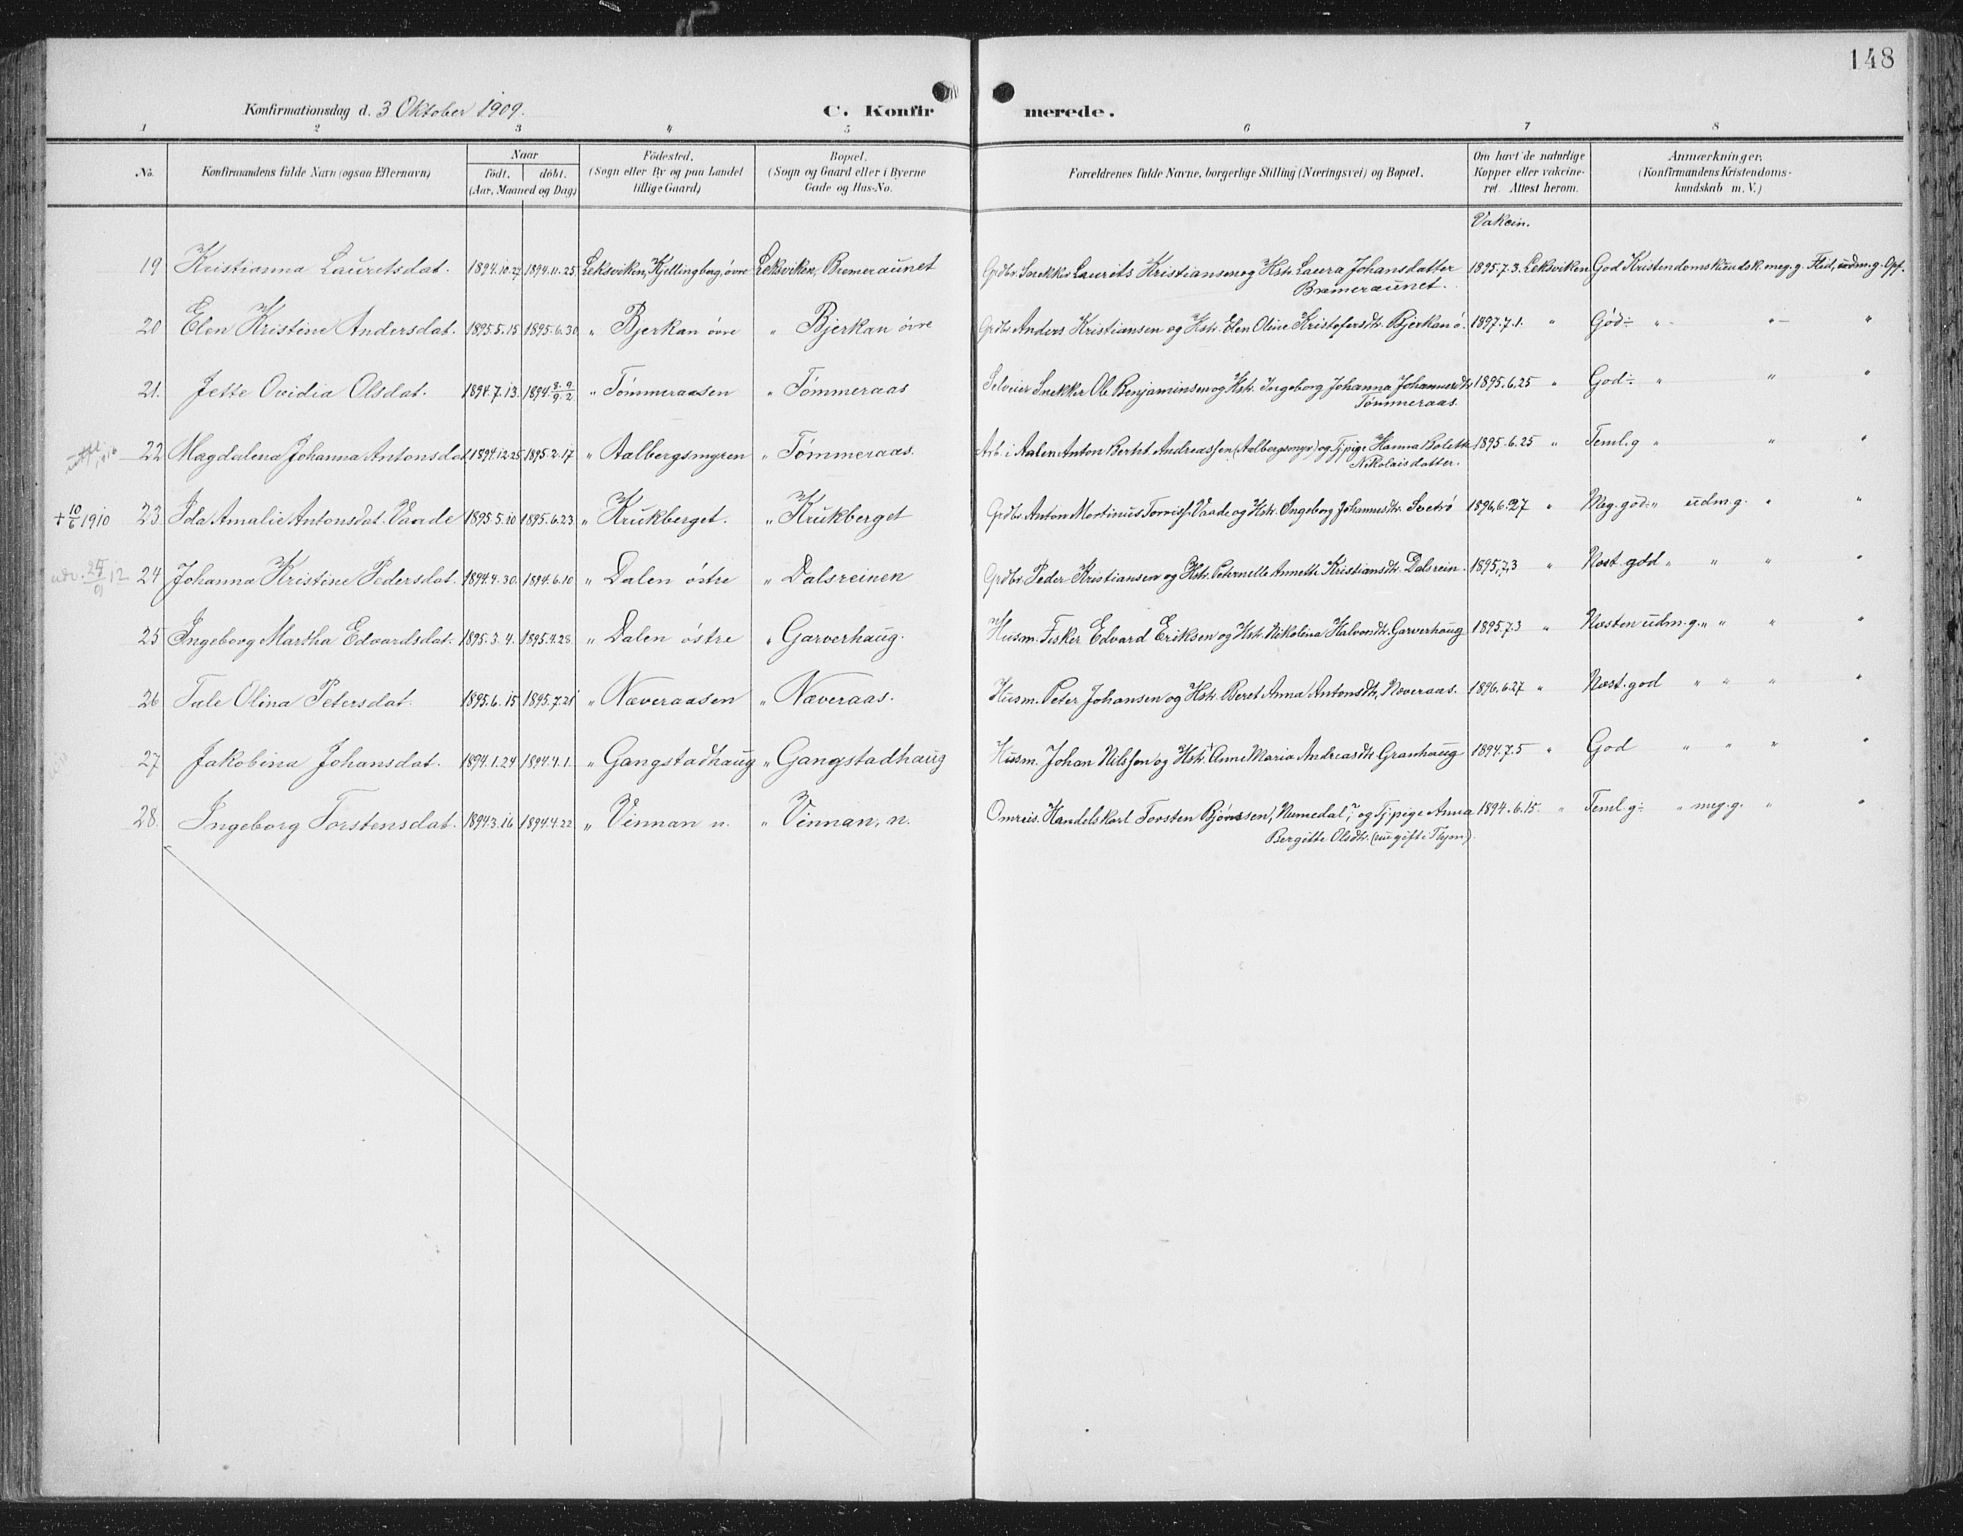 148
Konfirmationsdag d. 3 Oktober 1909.
C. Konfirmerede.
1 2 3 4 5 6 7 8
No. Konfirmandens fulde Navn (ogsaa Efternavn) Naar født. døbt. (Aar, Maaned og Dag) Fødested. (Sogn eller By og paa Landet tillige Gaard) Bopæl. (Sogn og Gaard eller i Byerne Gade og Hus-No. Forældrenes fulde Navne, borgerlige Stilling (Næringsvei) og Bopæl. Om havt de naturlige Kopper eller vakcineret. Attest herom. Anmærkninger. (Konfirmandens Kristendomskundskab m. V.)
Vakcin.
19 Kristianna Lauritsdat. 1894.10.27 1894.11.25 Leksviken, Kjellingberg, øvre Leksviken, Bremeraunet Grdbr. Snekker Laurits Kristiansen og Hstr. Laura Johansdatter 1895.7.3. Leksviken God Kristendomskundsk. meg. g. Flid, udm. g. Opf.
Bremeraunet.
20 Elen Kristine Andersdat. 1895.5.15 1895.6.30 " Bjerkan øvre " Bjerkan øvre Grdbr. Anders Kristiansen og Hstr. Elen Oline Kristofersdtr. Bjerkan ø. 1897.7.1. " God " " "
21. Jette Ovidia Olsdat. 1894.7.13. 1894. 8.9/9.2 " Tømmeraasen " Tømmeraas Selveier Snekker Ole Benjaminsen og Hstr. Ingeborg Johanna Johannesdtr 1895.6.25 " God " " "
Tømmeraas.
22 Magdalena Johanna Antonsdat 1894.12.25 1895.2.17 " Aalbergsmyren " Tømmeraas. Arb. i Aalen Anton Bernt Andreassen (Aalbergsmyr) og Tj.pige Hanna Bolette 1895.6.25 " Teml. g " " "
Nikolaisdatter.
+ 10/6 1910 23 Ida Amalie Antonsdat. Vaade 1895.5.10 1895.6.23. " Krukberget. " Krukberget Grdbr. Anton Martinus Torrisf. Vaade og Hstr. Ingeborg Johannesdtr. Svetrø 1896.6.27 " Meg. god " udm. g. " "
24 Johanna Kristine Pedersdat. 1894.4.30. 1894.6.10 " Dalen østre " Dalsreinen Grdbr. Peder Kristiansen og Hstr. Peternelle Annette Kristiansdtr. Dalsrein. 1895.7.3 " Næst. god " " " "
25 Ingeborg Martha Edvardsdat. 1895.3.4. 1895.4.28 " Dalen østre " Garverhaug. Husm. Fisker Edvard Eriksen og Hstr. Nikolina Halvordtr. Garverhaug 1895.7.3 " Næsten udm. g. " " " "
26 Tale Olina Petersdat. 1895.6.15 1895.7.21 " Næveraasen " Næveraas. Husm. Peter Johansen og Hstr. Beret Anna Antonsdtr. Næveraas. 1896.6.27 " Næst. god " " " "
27 Jakobina Johansdat. 1894.1.24 1894.4.1. " Gangstadhaug " Gangstadhaug Husm. Johan Nilssen og Hstr. Anne Maria Andreasdtr Granhaug 1894.7.5 " God " " " "
28. Ingeborg Torstensdat. 1894.3.16 1894.4.22 " Vinnan n. " Vinnan, n. Omreis. Handelskarl Torsten Bjørnssen, "Numedal", og Tj.pige Anna 1894.6.15. " Teml. g. " meg. g. " "
Bergitte Olsdtr. (nu gift i Thjem).